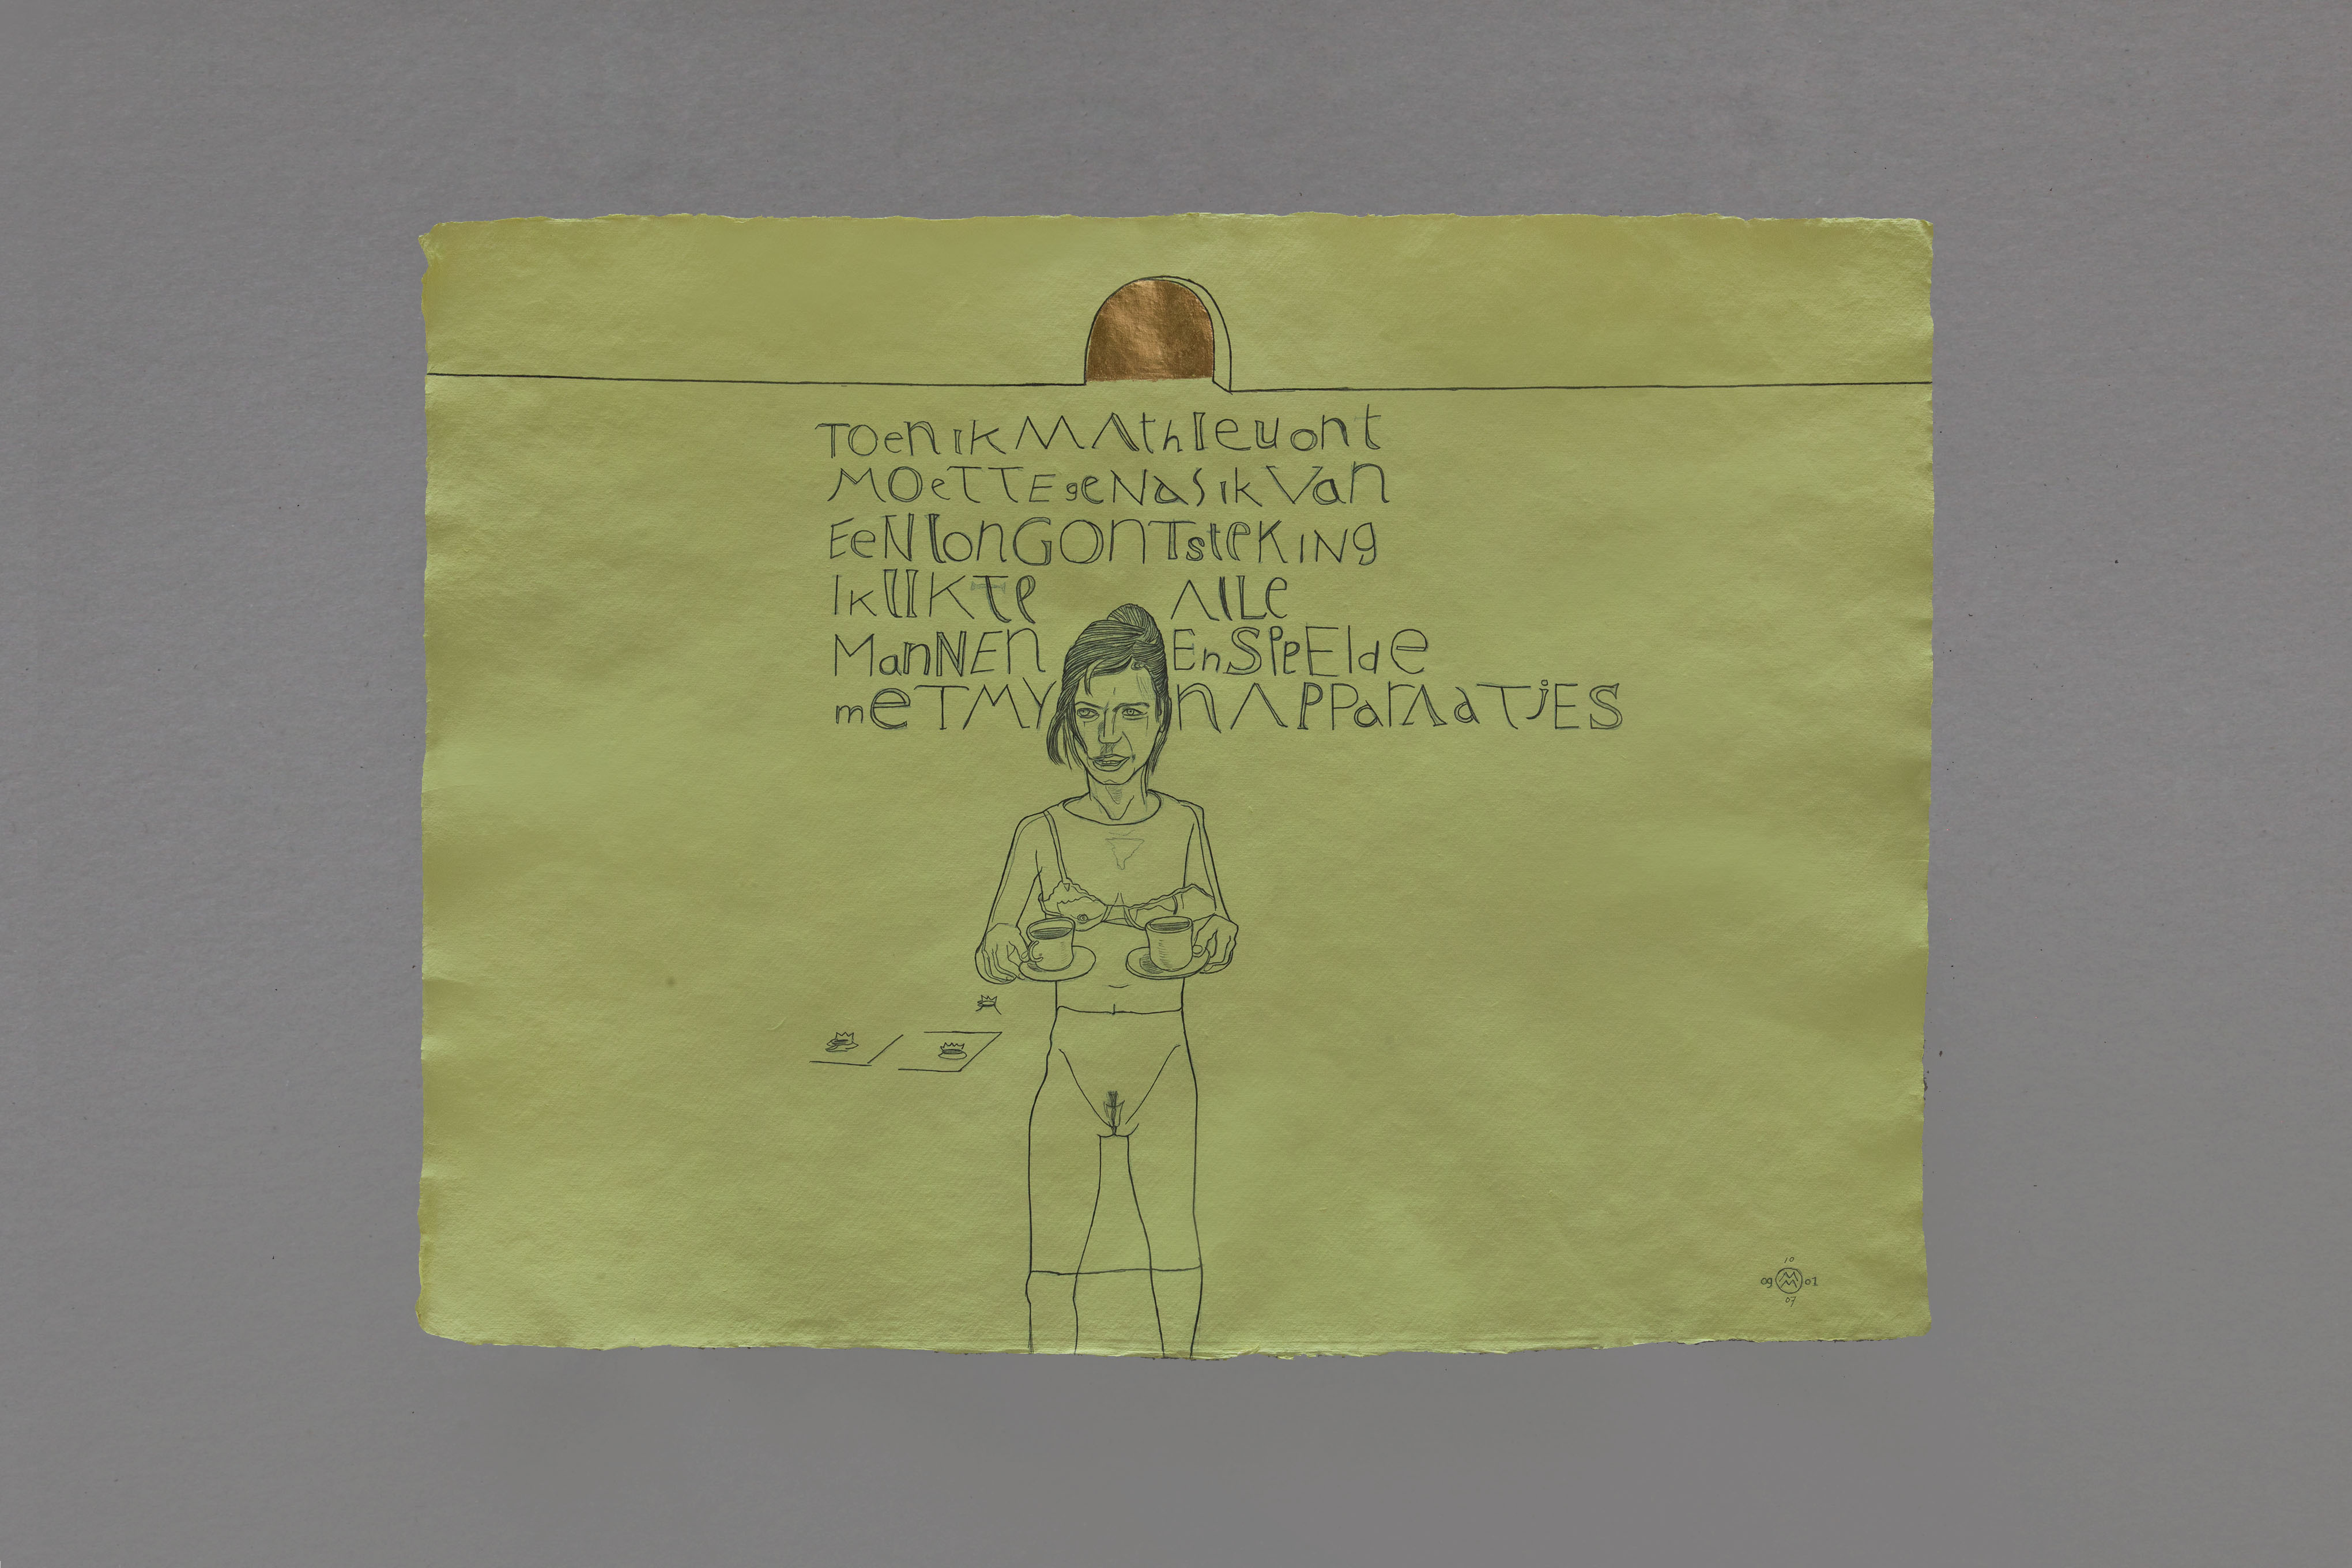 TOen ik MAthIeu ont
MOeTTE geNaS ik Van
EeN lonGOnTstekINg
Ik lIKTe ALLe
ManNEn En SpeElde
meT MYn APParAaTjES
10
09 MM 01
07